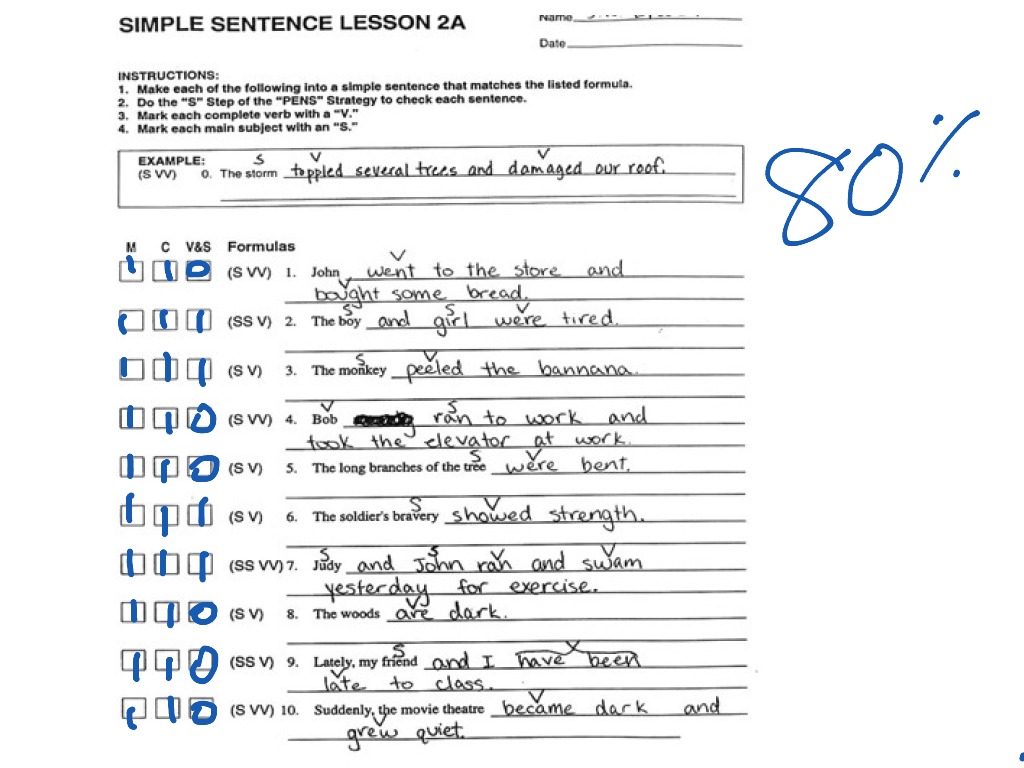 SIMPLE SENTENCE LESSON 2A
Name
Date
INSTRUCTIONS:
1. Make each of the following into a simple sentence that matches the listed formula.
2. Do the "S" Step of the "PENS" Strategy to check each sentence.
3. Mark each complete verb with a "V."
4. Mark each main subject with an "S."
80%
EXAMPLE: S V V
(S VV) 0. The storm toppled several trees and damaged our roof.
M C V&S Formulas
V
1 1 0 (S VV) 1. John went to the store and
V
bought some bread.
S S V
1 1 1 (SS V) 2. The boy and girl were tired.
S V
1 1 1 (S V) 3. The monkey peeled the bannana.
V S
1 1 0 (S VV) 4. Bob ran to work and
took the elevator at work.
S V
1 1 0 (S V) 5. The long branches of the tree were bent.
S V
1 1 1 (S V) 6. The soldier's bravery showed strength.
S S V V
1 1 1 (SS VV) 7. Judy and John ran and swam
yesterday for exercise.
V S
1 1 0 (S V) 8. The woods are dark.
S V
1 1 0 (SS V) 9. Lately, my friend and I have been
V
late to class.
V
1 1 0 (S VV) 10. Suddenly, the movie theatre became dark and
V
grew quiet.